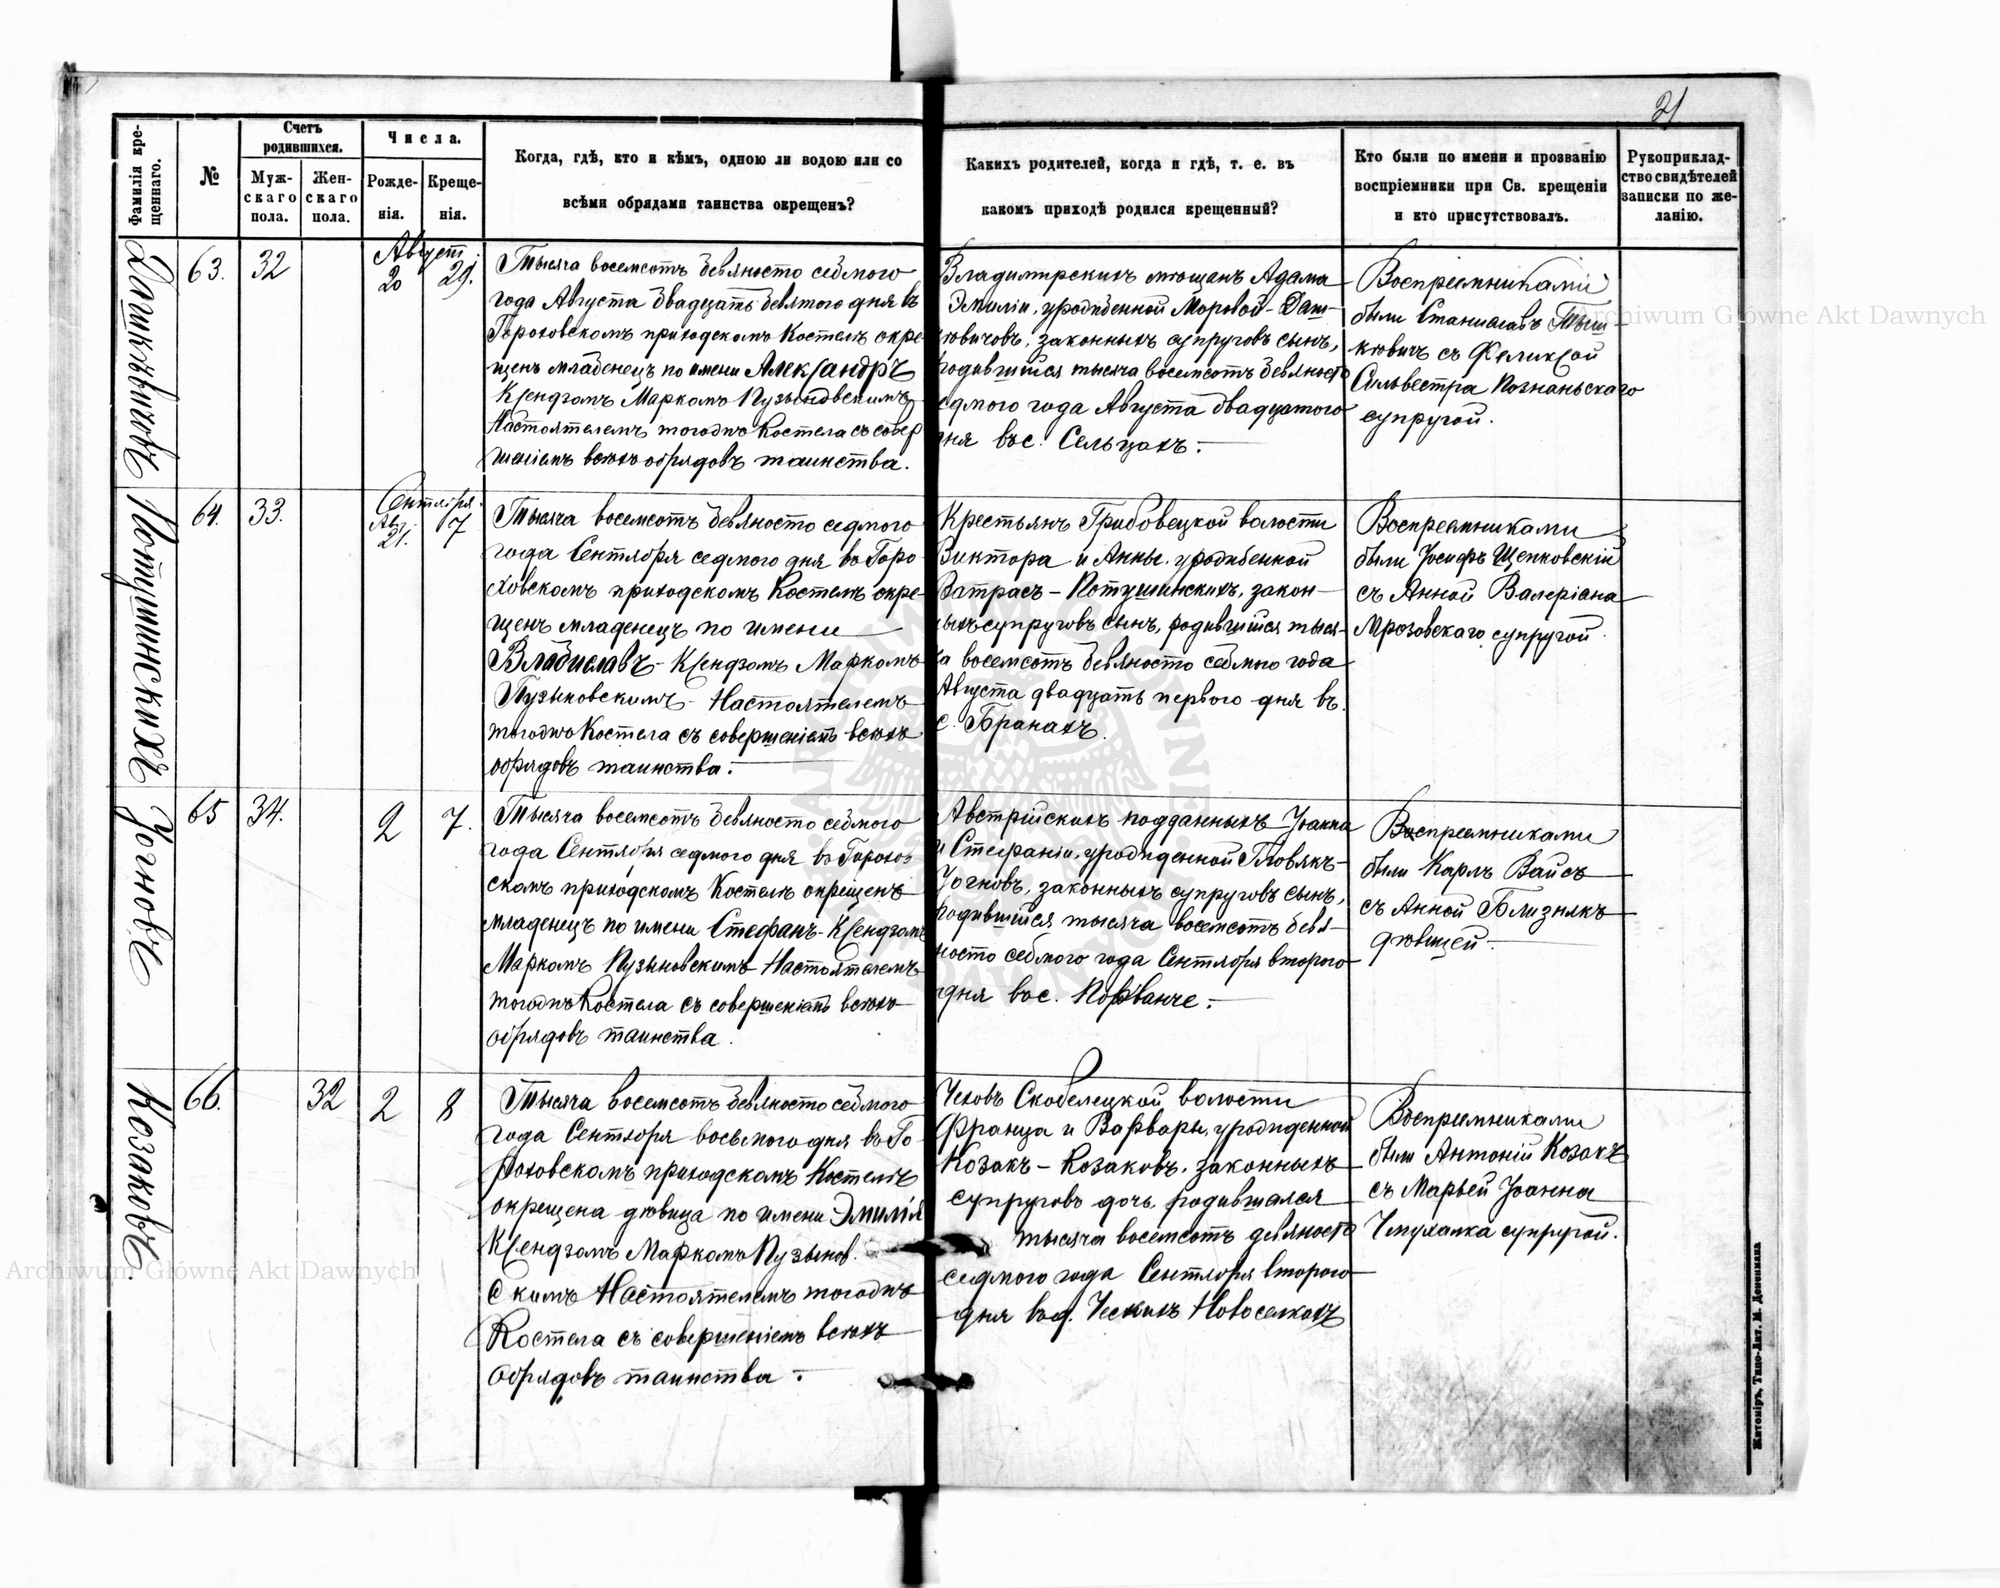 21
Фамилія кре-
щеннаго.
№
Счетъ
родившихся.
Муж-
скаго
пола.
Жен-
скаго
пола.
Числа.
Рожде-
нія.
Креще-
нія.
Когда, гдѣ, кто и кѣмъ, одною ли водою или со
всѣми обрядами таинства окрещенъ?
Какихъ родителей, когда и гдѣ, т. е. въ
какомъ приходѣ родился крещенный?
Кто были по имени и прозванію
воспріемники при Св. крещеніи
и кто присутствовалъ.
Рукоприклад-
ство свидѣтелей
записки по же-
ланію.
63.
32
Август.
20
29.
Тысяча восемсотъ девяносто седмого
года Августа двадцать девятого дня въ
Гороховскомъ приходскомъ Костелѣ окре
щенъ младенецъ по имени Александръ
Ксендзомъ Маркомъ Пузыновскимъ
Настоятелемъ тогожъ Костела съ совер
шеніемъ всѣхъ обрядовъ таинства.
Владимірскихъ мѣщанъ Адама
Эмиліи, урожденной Моровой - Даш-
кѣвичовъ, законныхъ супруговъ сынъ,
родившійся тысяча восемсотъ девяносто
седмого года Августа двадцатого
дня въ с. Сельцахъ.
Воспріемниками
были Станиславъ Тыш-
кѣвичъ съ Феликсой
Сильвестра Познаньскаго
супругой.
Потушинскихъ
64.
33.
Сентября.
Авг.
21.
7
Тысяча восемсотъ девяносто седмого
года Сентября седмого дня въ Горо
ховскомъ приходскомъ Костелѣ окре-
щенъ младенецъ по имени
Владиславъ - Ксендзомъ Маркомъ
Пузыновскимъ - Настоятелемъ
тогожъ Костела съ совершеніемъ всѣхъ
обрядовъ таинства.
Крестьянъ Грибовецкой волости
Виктора и Анны, урожденной
Ватрасъ - Потушинскихъ, закон-
ныхъ супруговъ сынъ, родившійся тыся-
ча восемсотъ девяносто седмого года
Августа двадцать первого дня въ
с. Бранахъ.
Воспреемниками
были Іосифъ Щепковскій
съ Анной Валеріана
Мрозовскаго супругой.
65
34.
2
7.
Тысяча восемсотъ девяносто седмого
года Сентября седмого дня въ Горохов
скомъ приходскомъ Костелѣ окрещенъ
младенецъ по имени Стефанъ - Ксендзомъ
Маркомъ Пузыновскимъ Настоятелемъ
тогожъ Костела съ совершеніемъ всѣхъ
обрядовъ таинства.
Австрійскихъ подданныхъ Іоанна
и Стефаніи, урожденной
законныхъ супруговъ сынъ,
родившійся тысяча восемсотъ девя-
носто седмого года Сентября второго
дня въ с. Порванче.
Воспреемниками
были Карлъ Вайсъ
съ Анной Близнякъ
дѣвицей.
Козаковъ.
66.
32
2
8
Тысяча восемсотъ девяносто седмого
года Сентября восьмого дня въ Го-
роховскомъ приходскомъ Костелѣ
окрещена дѣвица по имени Эмилія
Ксендзомъ Маркомъ Пузынов.
скимъ Настоятелемъ тогожъ
Костела съ совершеніемъ всѣхъ
обрядовъ таинства.
Чеховъ Скобелецкой волости
Франца и Варвары, урожденной
Козакъ - Козаковъ, законныхъ
супруговъ дочь, родившаяся
тысяча восемсотъ девяносто
седмого года Сентября второго
дня въ Ческихъ Новоселкахъ
Воспреемниками
были Антоній Козакъ
съ Марьей Іоанна
супругой.
Житоміръ, Типо-Лит. М. Дененмана
Archiwum Główne Akt Dawnych
Archiwum Główne Akt Dawnych